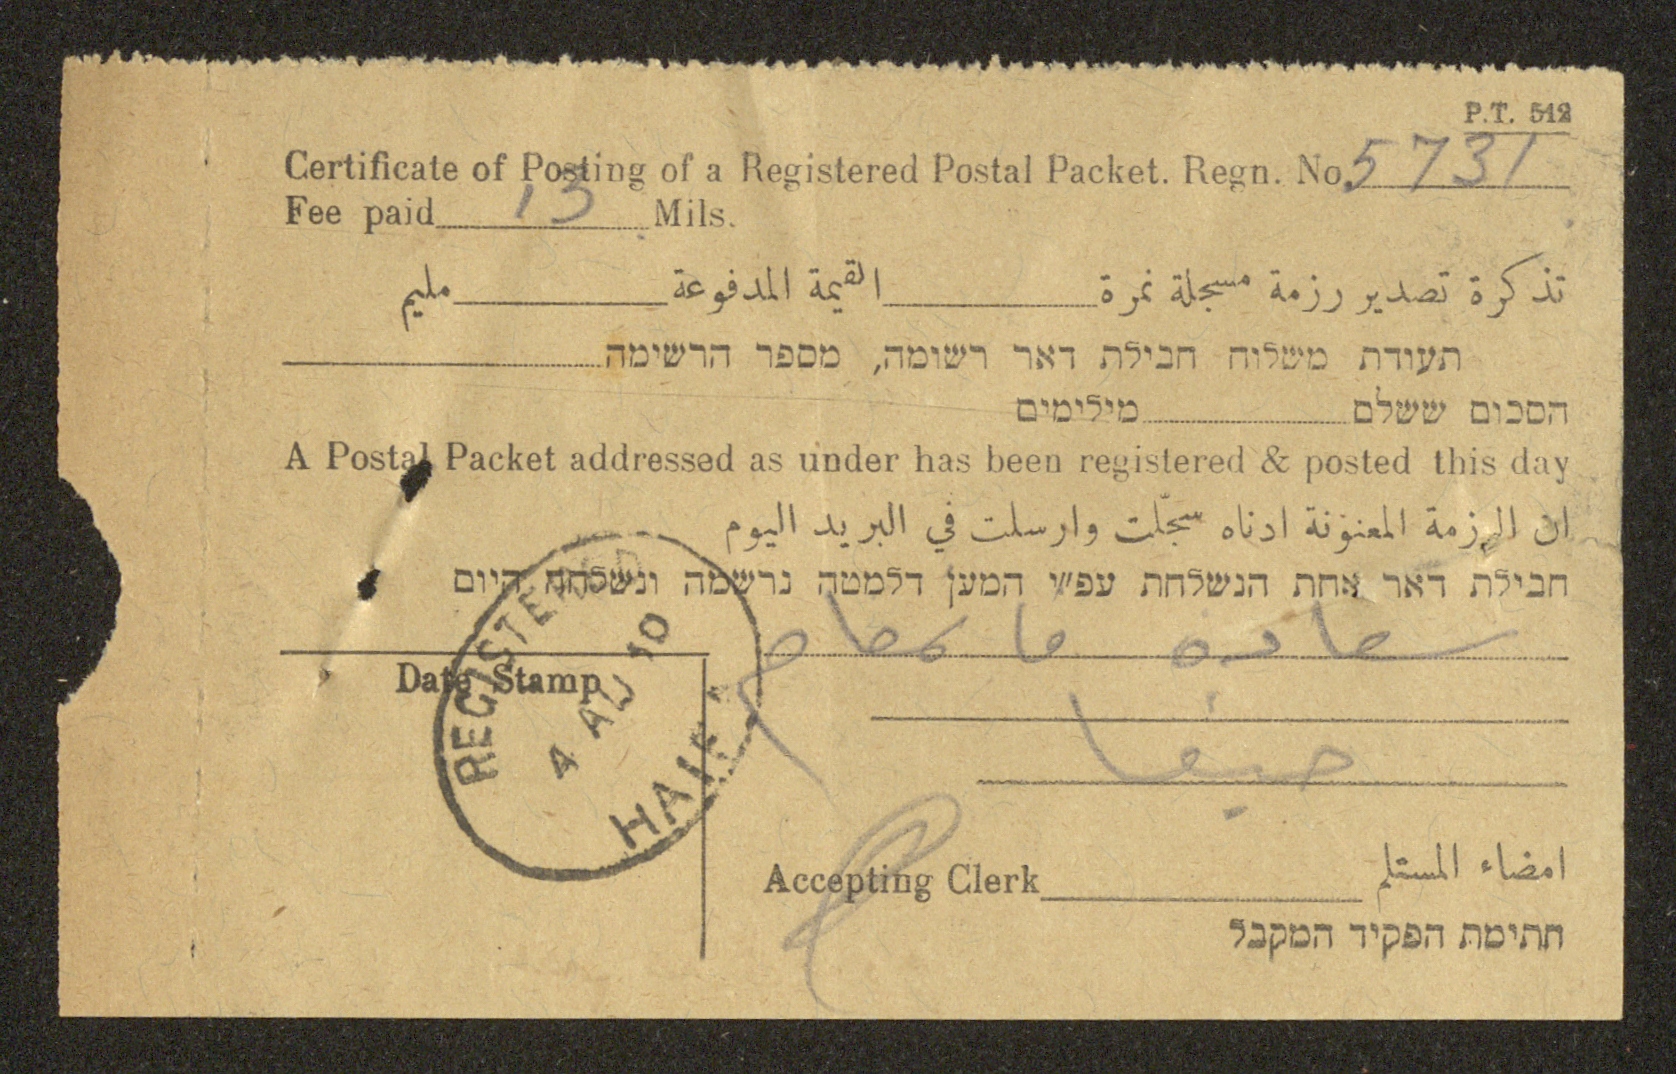 P.T. 512
Certificate of Posting of a Registered Postal Packet. Regn. No. 5731
Fee paid 13 Mils.
تذكرة تصدير رزمة مسجلة نمرة القيمة المدفوعة مليم
תעודת משלוח חבילת דאר רשומה, מספר הרשימה
הסכום ששלם מילימים
A Postal Packet addressed as under has been registered & posted this day
ان الرزمة المعنونة ادناه سجّلت وارسلت في البريد اليوم
חבילת דאר אחת הנשלחת עפ״י המען דלמטה נרשמה ונשלחה היום
سعادة
حيفا
Date Stamp
REGISTERED
4 AU 10
HAIFA
Accepting Clerk امضاء المستلم
חתימת הפקיד המקבל